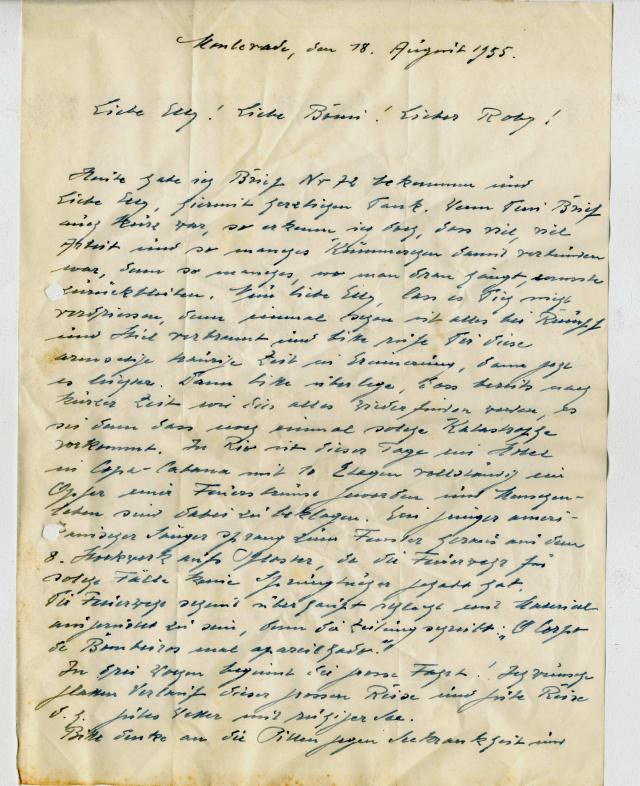 Monlevade, den 18. August 1955.
Liebe Elly! Liebe Bömi! Lieber Roby!
Heute habe ich Brief Nr 72 bekommen und
Liebe Elly, hiermit herzlichen Dank. Wenn Dein Brief
auch kurz war, so erkenne ich doch, dass viel, viel
Arbeit und so manches Kümmerchen damit verbunden
war, denn so manches, wo man dran hängt, musste
zurückbleiben. Nun liebe Elly, lass es Dich nicht
verdriessen, denn einmal schon ist alles bei
und Stiel verbrannt und bitte rufe Dir diese
armselige traurige Zeit in Erinnerung, dann geht
es leichter. Dann bitte überlege, dass bereits nach
kurzer Zeit wir dies alles wieder finden werden, es
sei denn dass noch einmal solche Katastrophe
vorkommt. In Rio ist dieser Tage ein Hotel
in Copa-Cabana mit 10 Etagen vollständig ein
Opfer einer Feuersbrunst geworden und Menschen-
leben sind dabei zu beklagen. Ein junger ameri-
kanischer Sänger sprang zum Fenster heraus aus dem
8. Stockwerk aufs Pflaster, da die Feuerwehr für
solche Fälle keine Sprungtücher gehabt hat.
Die Feuerwehr scheint überhaupt schlecht mit Material
ausgerüstet zu sein, denn die Zeitung schreibt: "O Corpo
de Bombeiros mal apareilhado."
In drei Wochen beginnt die grosse Fahrt! Ich wünsche
glatten Verlauf dieser grossen Reise und gute Reise
d. h. gutes Wetter mit ruhiger See.
Bitte denke an die Pillen gegen Seekrankheit und